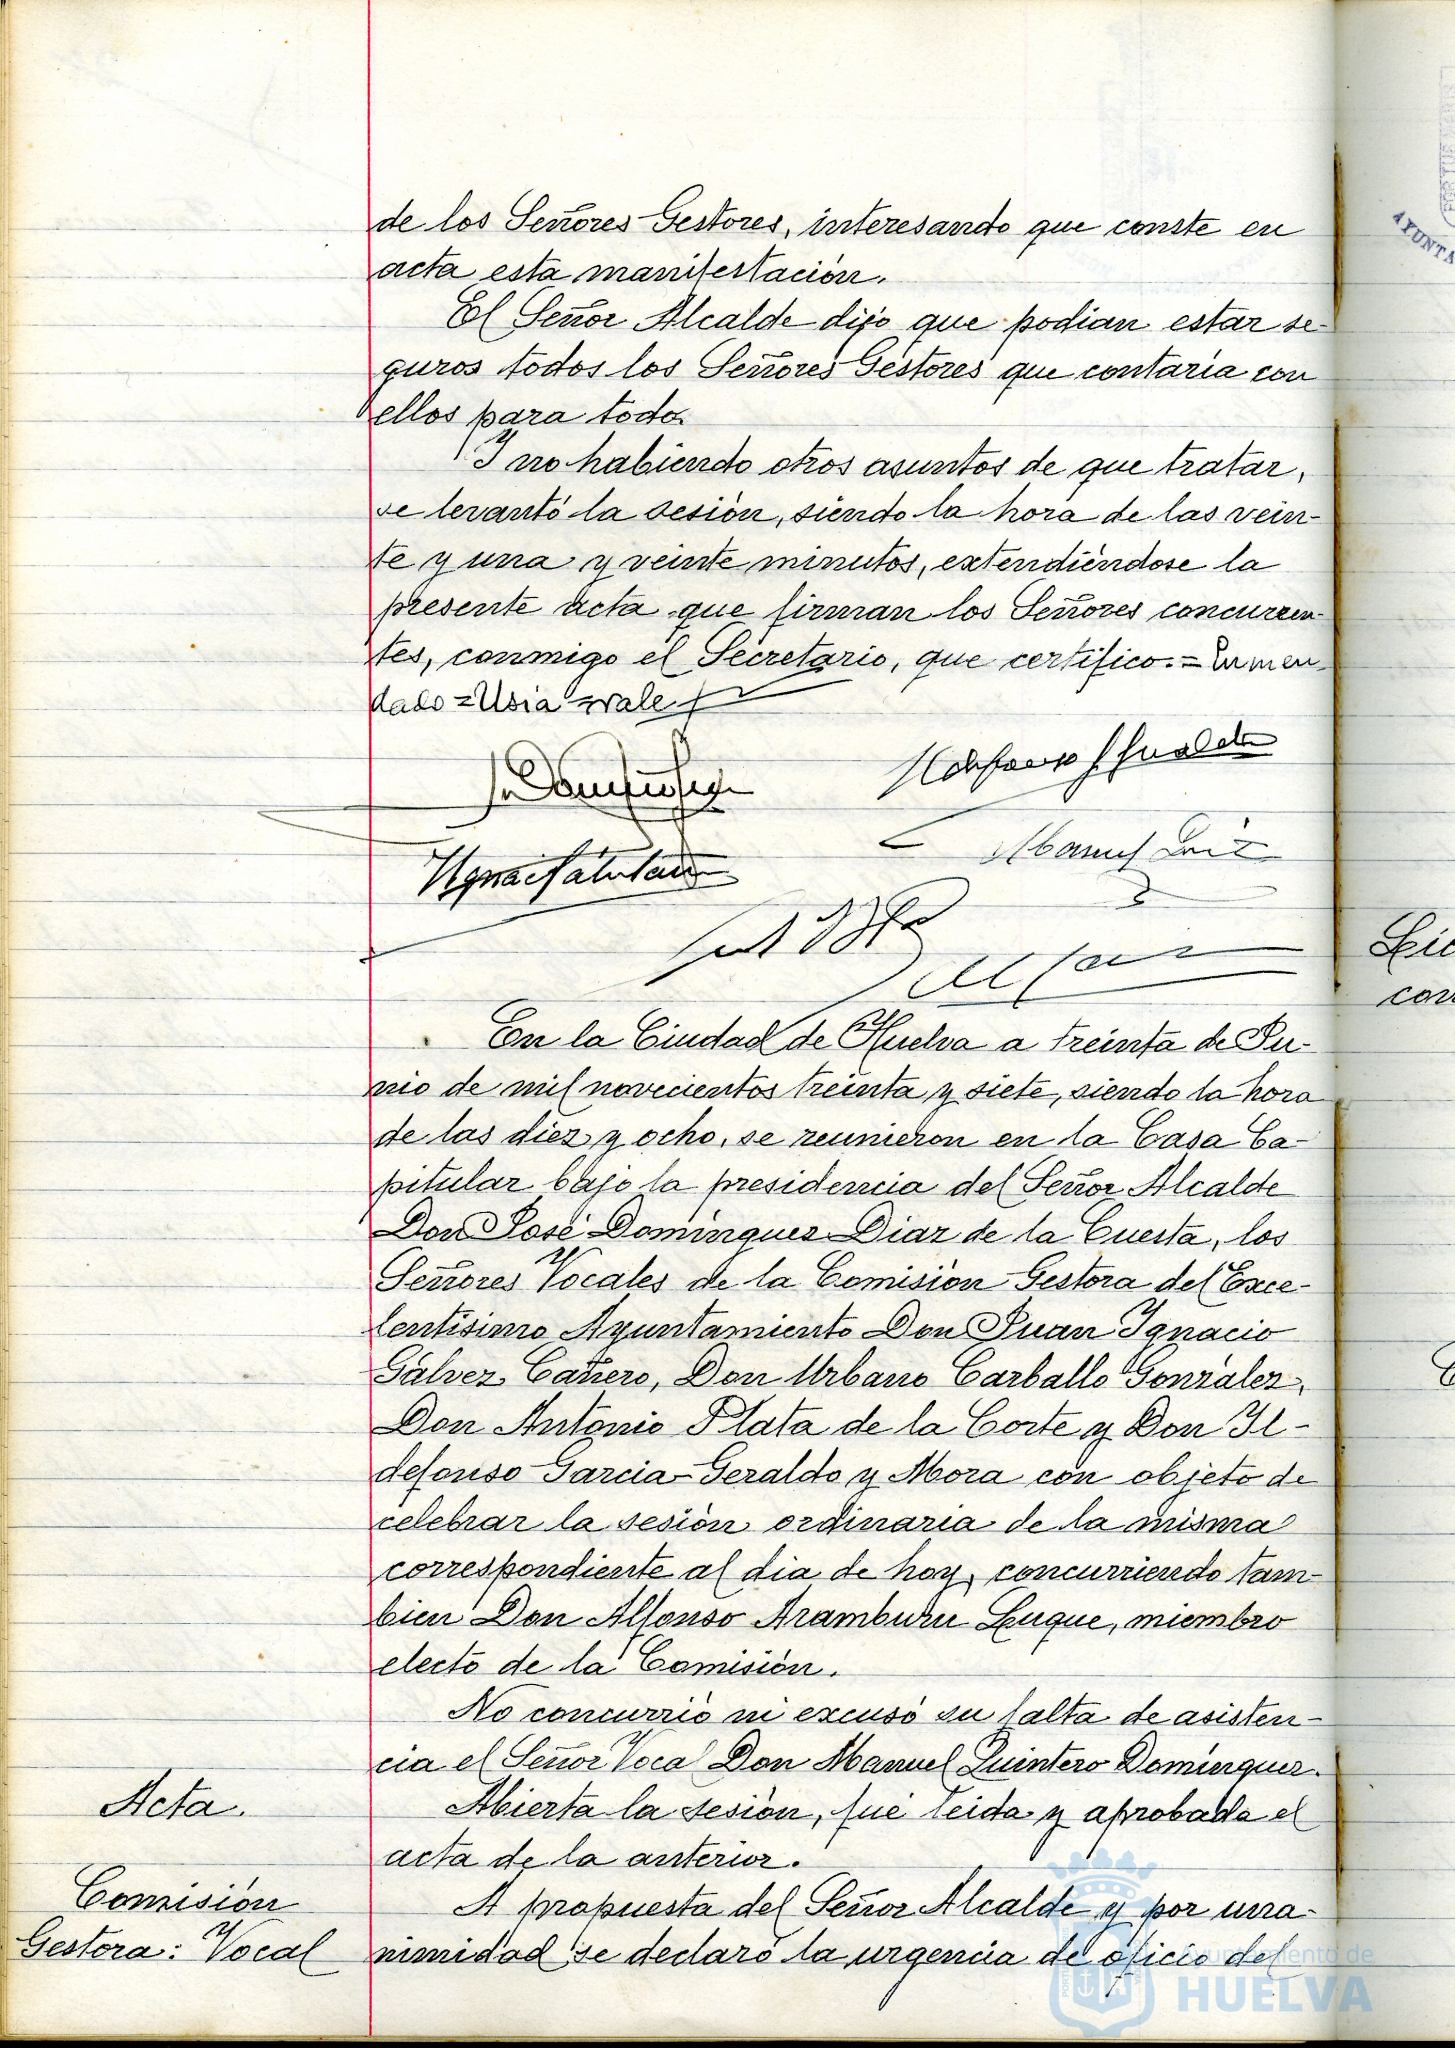 de los Señores Gestores, interesando que conste en
acta esta manifestación.
El Señor Alcalde dijo que podian estar se-
guros todos los Señores Gestores que contaria con
ellos para todo.
Y no habiendo otros asuntos de que tratar,
se levantó la sesión, siendo la hora de las vein-
te y una y veinte minutos, extendiéndose la
presente acta que firman los Señores concurren-
tes, conmigo el Secretario, que certifico.=Enmen-
dado=Usia=vale
En la Ciudad de Huelva a treinta de Ju-
nio de mil novecientos treinta y siete, siendo la hora
de las diez y ocho, se reunieron en la Casa Ca-
pitular bajo la presidencia del Señor Alcalde
Don José Dominguez Diaz de la Cuesta, los
Señores Vocales de la Comisión Gestora del Exce-
lentisimo Ayuntamiento Don Juan Ignacio
Gálvez Cañero, Don Urbano Carballo González,
Don Antonio Plata de la Corte y Don Il-
defonso Garcia-Geraldo y Mora con objeto de
celebrar la sesión ordinaria de la misma
correspondiente al dia de hoy, concurriendo tam-
bien Don Alfonso Aramburu Luque, miembro
electo de la Comisión.
No concurrió ni excusó su falta de asisten-
cia el Señor Vocal Don Manuel Quintero Dominguez.
Acta.
Abierta la sesión, fué leida y aprobada el
acta de la anterior.
Comisión
A propuesta del Señor Alcalde y por una-
Gestora: Vocal
nimidad se declaró la urgencia de oficio del
Ayuntamiento de
HUELVA
AYUNTA